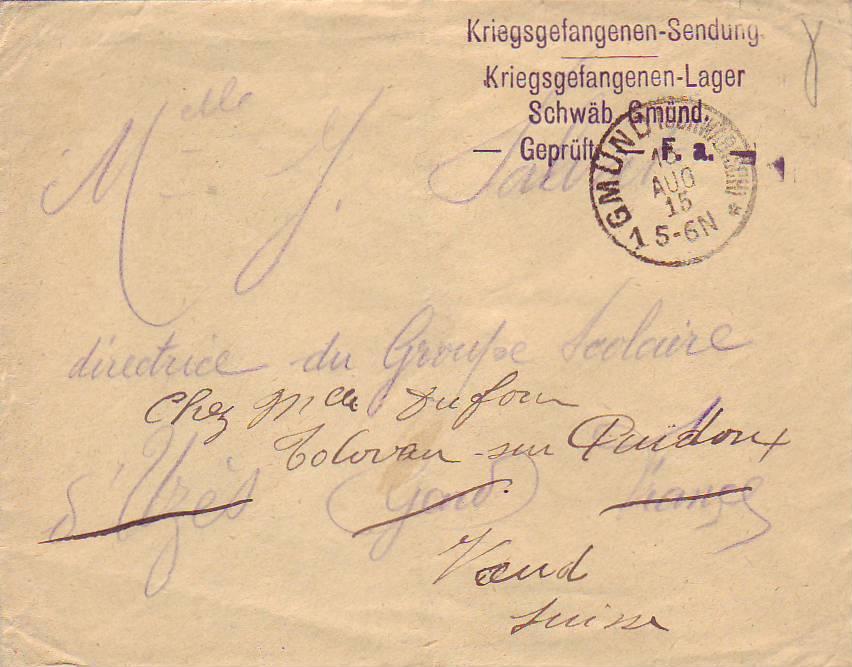 Kriegsgefangenen-Sendung
Kriegsgefangenen-Lager
Schwäb. Gmünd.
— Geprüft — F. a.
GMÜND (SCHWÄB.)
AUG
15
5-6N
Melle J.
directrice du Groupe Scolaire
Chez Mlle Dufour
sur Puidoux
d'Uzès (Gard) France
Vaud
Suisse